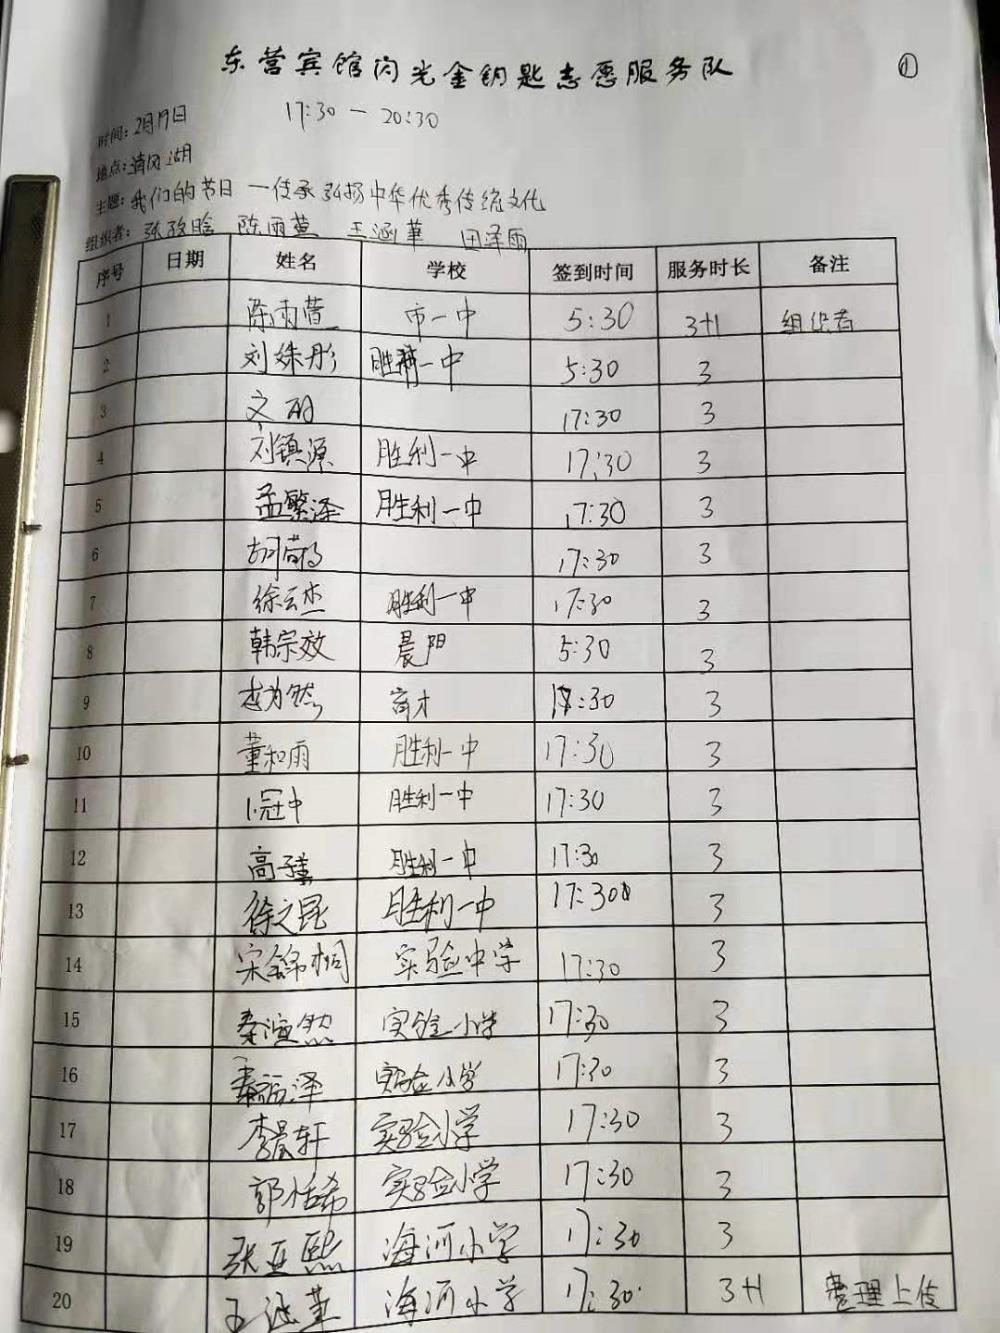 东营宾馆闪光金钥匙志愿服务队 ①
时间：2月19日 17:30 — 20:30
地点：清风湖
主题：我们的节日 — 传承弘扬中华优秀传统文化
组织者： 陈雨萱 王涵華 田泽雨
序号 日期 姓名 学校 签到时间 服务时长 备注
1 陈雨萱 市一中 5:30 3+1 组织者
2 刘姝彤 胜利一中 5:30 3
3 17:30 3
4 刘镇源 胜利一中 17:30 3
5 孟繁泽 胜利一中 17:30 3
6 17:30 3
7 徐云杰 胜利一中 17:30 3
8 韩宗效 晨阳 5:30 3
9 17:30 3
10 董和雨 胜利一中 17:30 3
11 冠中 胜利一中 17:30 3
12 胜利一中 17:30 3
13 徐文昆 胜利一中 17:30 3
14 宋锦桐 实验中学 17:30 3
15 秦渲然 实验小学 17:30 3
16 秦福泽 实验小学 17:30 3
17 李晨轩 实验小学 17:30 3
18 郭恬希 实验小学 17:30 3
19 张亚熙 海河小学 17:30 3
20 王涵華 海河小学 17:30 3+1 整理上传